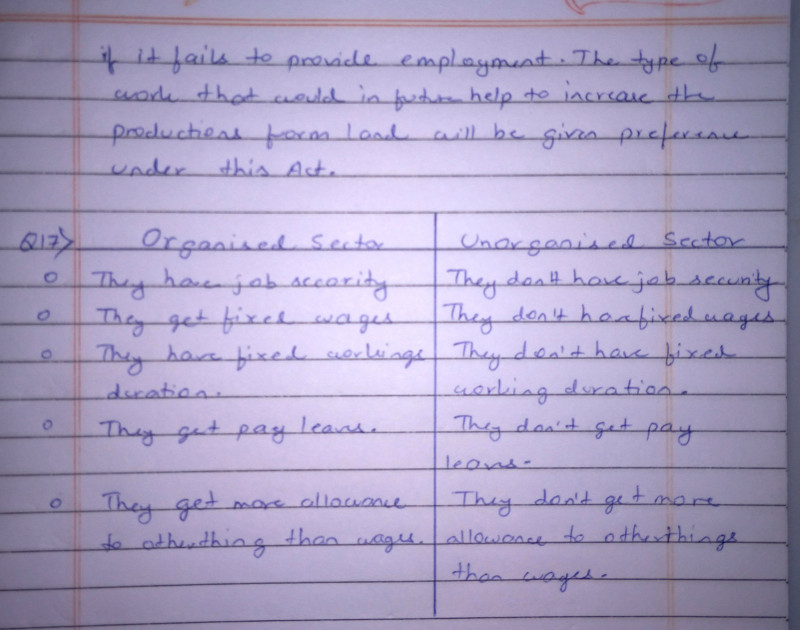 if it fails to provide employment. The type of
work that would in future help to increase the
productions form land will be given preference
under this Act.
Q17> Organised Sector Unorganised Sector
They have job secority They don't have job security
They get fixed wages They don't have fixed wages
They have fixed workings They don't have fixed
duration. working duration.
They get pay leaves. They don't get pay
leaves.
They get more allowance They don't get more
to otherthing than wages. allowance to otherthings
than wages.